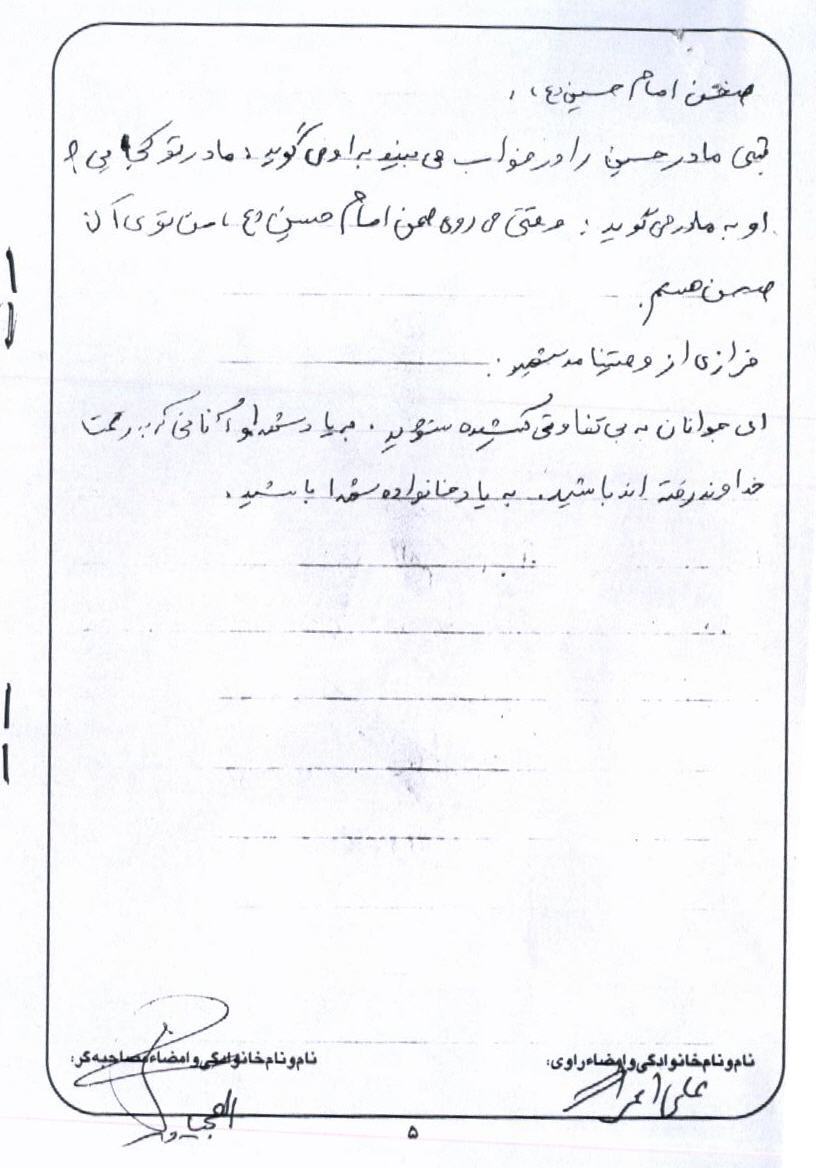 صحن امام حسین (ع) :
شبی مادر حسین را در خواب می بیند به او می گوید : مادر تو کجایی ؟
او به مادر می گوید : وقتی می روی صحن امام حسین (ع) ، من توی آن
صحن هستم .
فرازی از وصیتنامه شهید :
ای جوانان به بی تفاوتی کشیده نشوید . به یاد شهدا و آنانی که به رحمت
خداوند رفته اند باشید . به یاد خانواده شهدا باشید .
نام و نام خانوادگی و امضاء راوی:
نام و نام خانوادگی و امضاء مصاحبه گر:
علی
۵